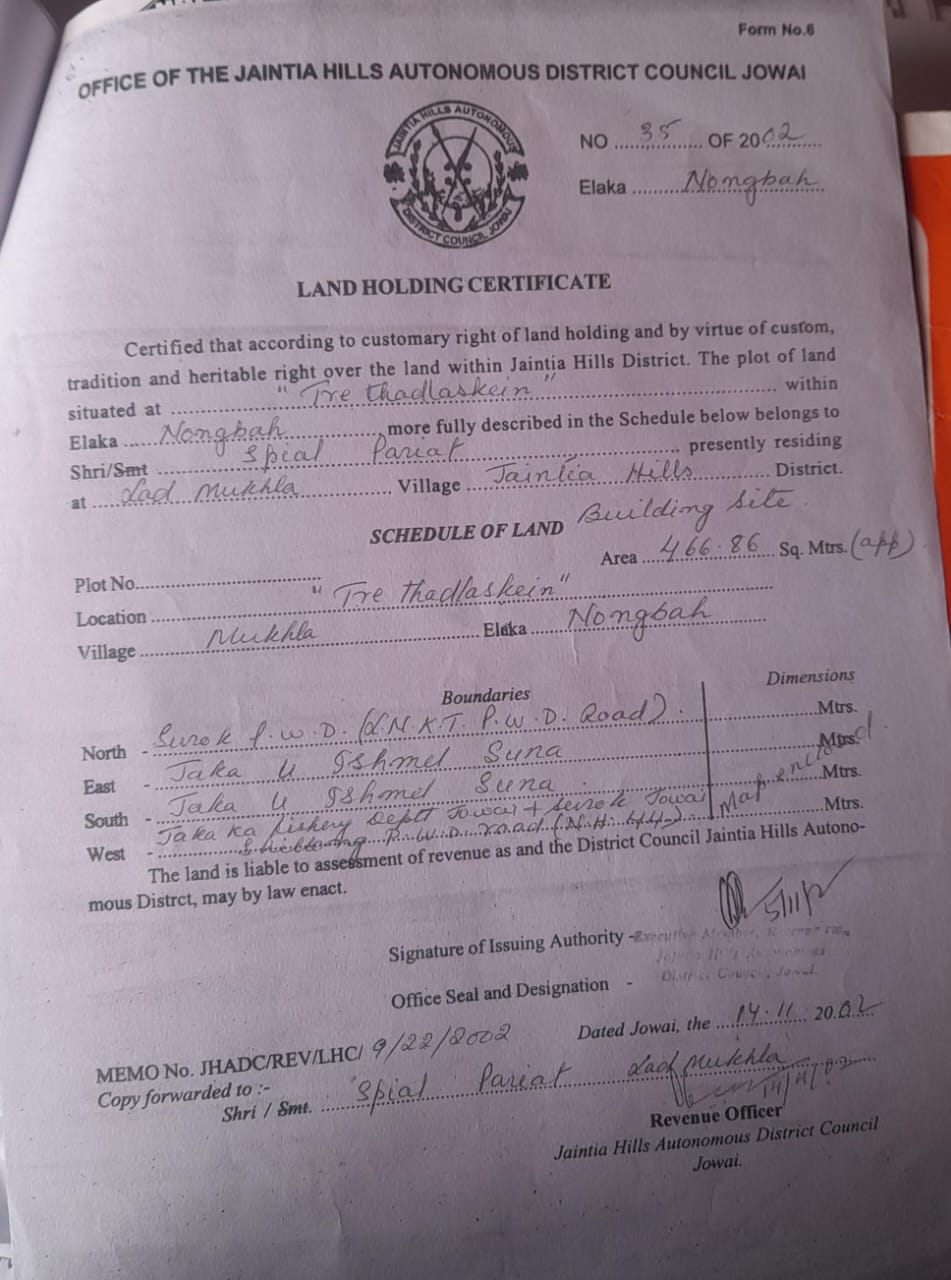 Form No.6
OFFICE OF THE JAINTIA HILLS AUTONOMOUS DISTRICT COUNCIL JOWAI
JAINTIA HILLS AUTONOMOUS
DISTRICT COUNCIL JOWAI
NO ....35.... OF 2002
Elaka ....Nongbah....
LAND HOLDING CERTIFICATE
Certified that according to customary right of land holding and by virtue of custom,
tradition and heritable right over the land within Jaintia Hills District. The plot of land
situated at ...."Tre thadlaskein".... within
Elaka ....Nongbah...., more fully described in the Schedule below belongs to
Shri/Smt ....Spial Pariat.... presently residing
at ....Lad Mukhla.... Village ....Jaintia Hills.... District.
SCHEDULE OF LAND Building site.
Area ....466.86.... Sq. Mtrs. (app)
Plot No....................................
Location ...."Tre thadlaskein"....
Village ....Mukhla.... Elaka ....Nongbah....
Boundaries Dimensions
North - Surok P.W.D. (L.N.K.T. P.W.D. Road). ....Mtrs.
East - Jaka U Ishmel Suna ....Mtrs.
South - Jaka U Ishmel Suna ....Mtrs.
West - Jaka ka fishery Deptt Jowai + Surok Jowai ....Mtrs.
P.W.D. road (N.H. 44).
Map enclosed
The land is liable to assessment of revenue as and the District Council Jaintia Hills Autono-
mous Distrct, may by law enact.
Signature of Issuing Authority - Executive Member, Revenue
District Council, Jowai.
Office Seal and Designation -
Dated Jowai, the ....14.11.... 2002
MEMO No. JHADC/REV/LHC/ 9/22/2002
Copy forwarded to :-
Shri / Smt. ....Spial Pariat Lad Mukhla....
14/11/02
Revenue Officer
Jaintia Hills Autonomous District Council
Jowai.